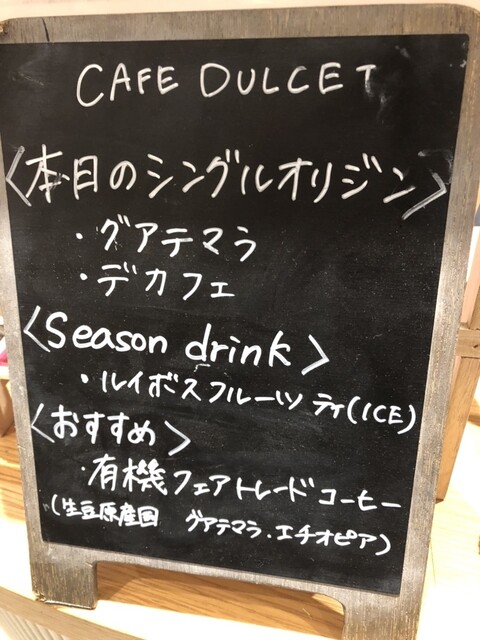 CAFE DULCET
〈本日のシングルオリジン〉
・グアテマラ
・デカフェ
〈Season drink〉
・ルイボスフルーツティ(ICE)
〈おすすめ〉
・有機フェアトレードコーヒー
(生豆原産国 グアテマラ.エチオピア)